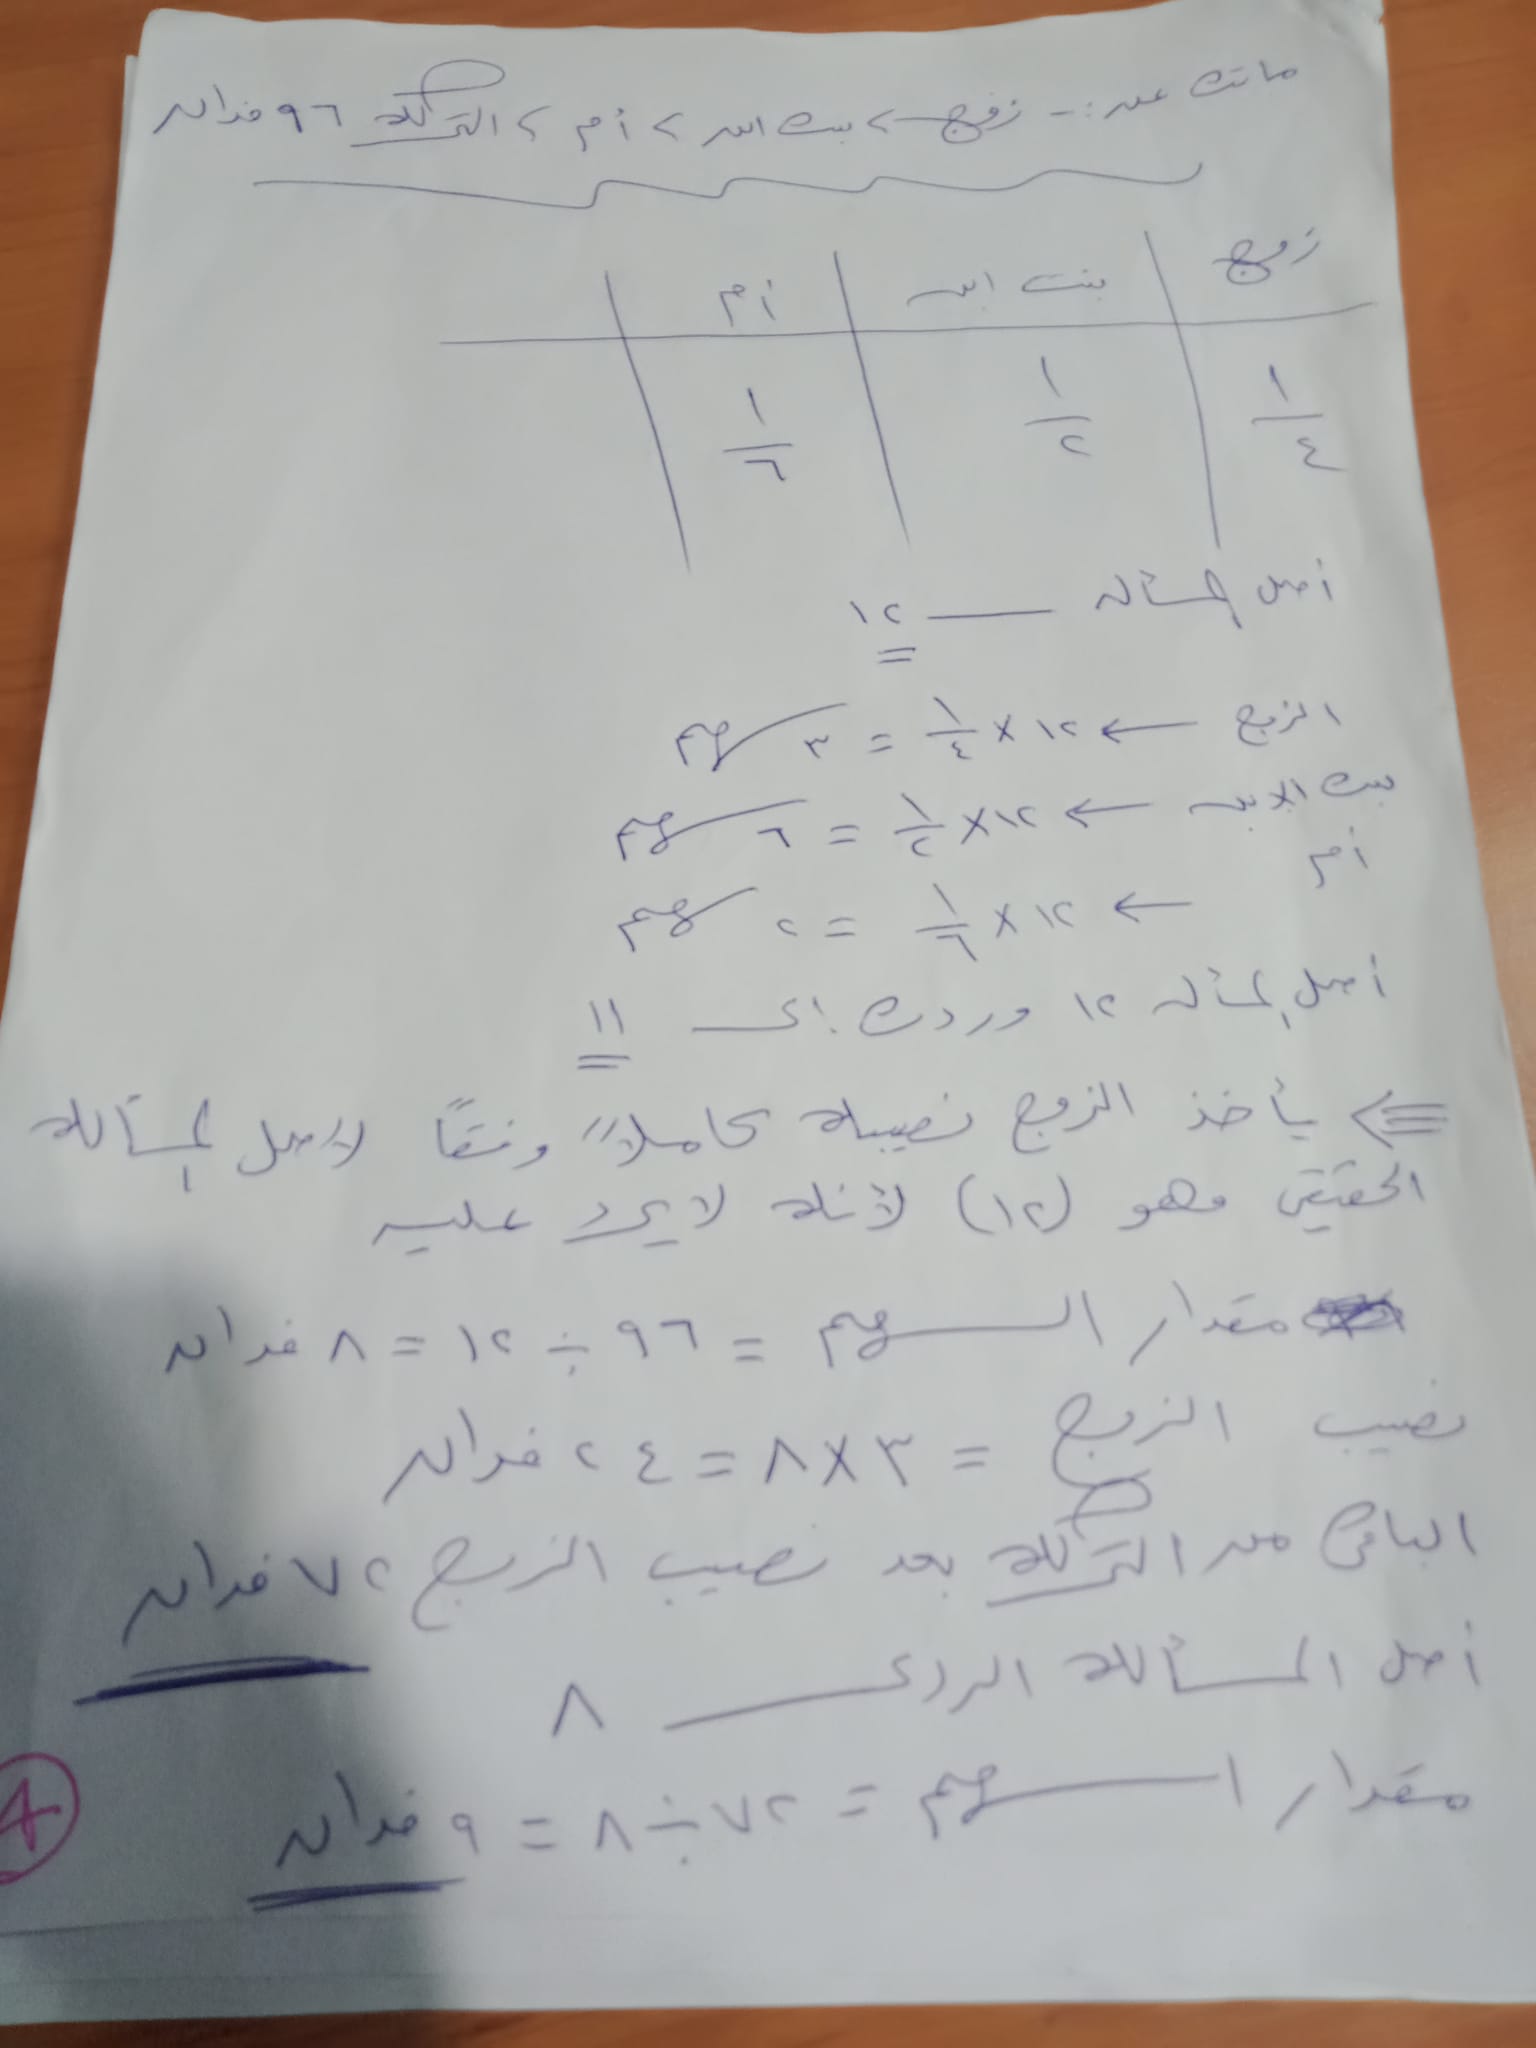 ماتت عن :- زوج > بنت ابن > أم > التركة ٩٦ فدان
زوج | بنت ابن | أم
١/٤ | ١/٢ | ١/٦
أصل المسألة ــــ ١٢
الزوج ← ١٢ × ١/٤ = ٣ سهم
بنت الابن ← ١٢ × ١/٢ = ٦ سهم
أم ← ١٢ × ١/٦ = ٢ سهم
أصل المسألة ١٢ وردت إلى ١١
يأخذ الزوج نصيبه كاملاً وفقاً لأصل المسألة
الحقيقي وهو (١٢) لأنه لا يرد عليه
مقدار السهم = ٩٦ ÷ ١٢ = ٨ فدان
نصيب الزوج = ٣ × ٨ = ٢٤ فدان
الباقي من التركة بعد نصيب الزوج ٧٢ فدان
أصل المسألة الردى ــــ ٨
مقدار السهم = ٧٢ ÷ ٨ = ٩ فدان